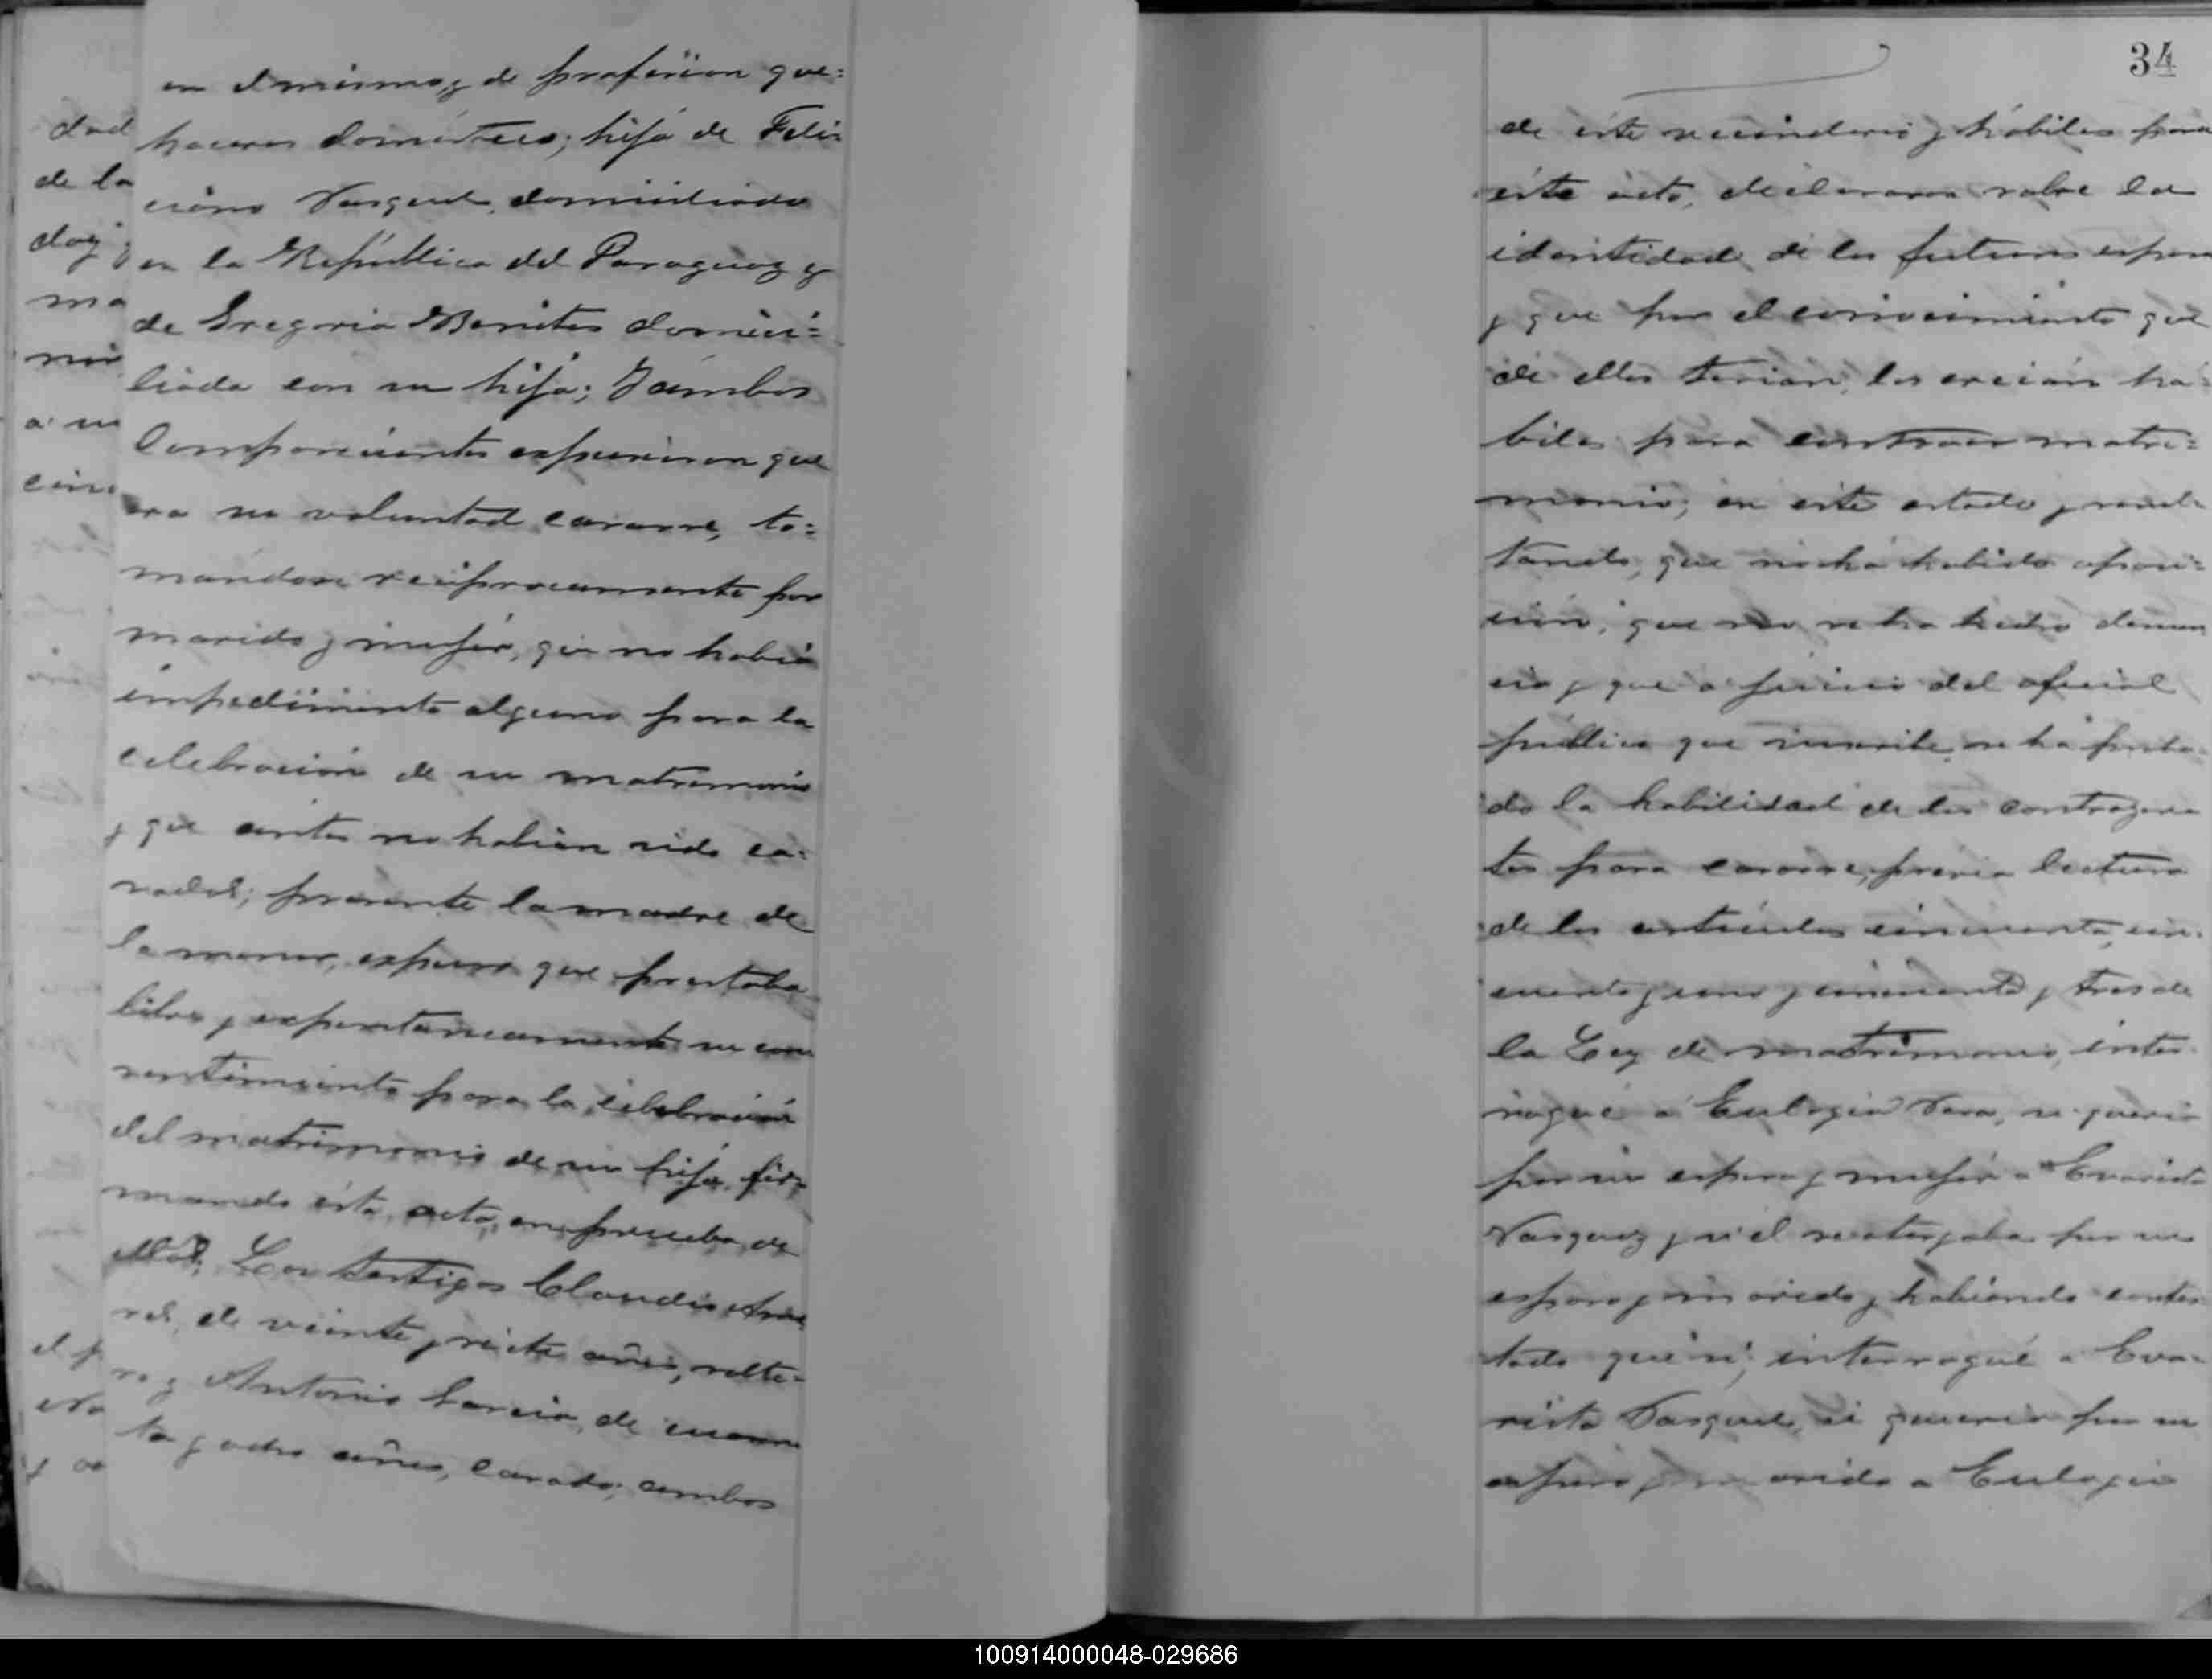 en el mismo, y de profesion que=
haceres domésticos; hija de Feli=
ciano Vasquez, domiciliado
en la República del Paraguay y
de Gregoria Benites domici=
liada con su hija; Y ambos
Comparecientes expusieron que
era su voluntad casarse, to=
mandose reciprocamente por
marido y mujer, que no había
impedimento alguno para la
celebracion de su matrimonio
y que antes no habian sido ca=
sados; presente la madre de
la menor, expuso que prestaba
libre y expontaneamente su con
sentimiento para la celebración
del matrimonio de su hija, fir=
mando esta acta, en prueba de
ello; Los testigos Claudio
de veinte y siete años, solte=
ro y Antonio Garcia, de cuaren
ta y ocho años, casado, ambos
dad
de la
doy
ma
a su
el p
34
de este vecindario y hábiles para
este acto, declararon sobre la
identidad de los futuros espos
y que por el conocimiento que
de ellos tenian, los creian há=
biles para contraer matri=
monio; en este estado y resul=
tando, que no ha habido oposi=
cion, que no se ha hecho denun
cia y que a juicio del oficial
público que suscribe se ha proba
do la habilidad de los contrayen
tes para casarse, previa lectura
de los articulos cincuenta, cin=
cuenta y uno y cincuenta y tres de
la Ley de matrimonio, inter=
rogué a Eulogio Vera, si queria
por su esposa y mujer a Evarista
Vasquez y si él se otorgaba por su
esposo y marido y habiendo contes
tado que si, interrogué a Eva=
rista Vasquez, si queria por su
esposo y marido a Eulogio
100914000048-029686